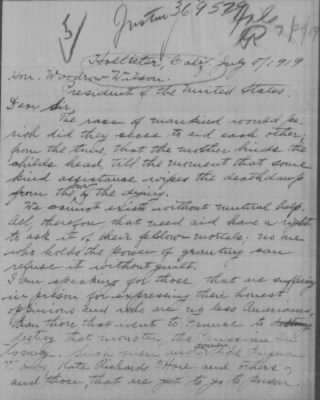 Justice 369529 File
Hollister, Calif. July 5/1919
Hon. Woodrow Wilson.
President of the United States.
Dear Sir,
The race of mankind would pe-
rish did they cease to aid each other,
from the time, that the mother binds the
childs head, till the moment that some
kind assistance wipes the deathdamp
from the brow of the dying.
We cannot exist without mutual help.
All, therefore that need aid have a right
to ask it of their fellow-mortals. no one
who holds the power of granting can
refuse it without guilt.
I am speaking for those that are suffering
in prison for expressing their honest
opinions and who are no less Americans,
than those that went to France to
destroy that monster, the Prussian
such men and women like Eugene
V Debs, Kate Richards O'Hare and others,
and those, that are yet to go to prison.